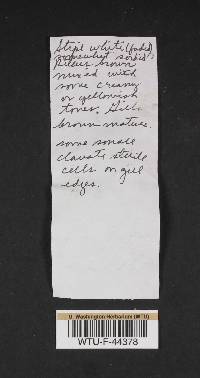 Stipe white (faded)
somewhat
Pileus brown
mixed with
some creamy
or yellowish
tones. Gills
brown mature.
some small
clavate sterile
cells on gill
edges.
U. Washington Herbarium (WTU)
WTU-F-44378